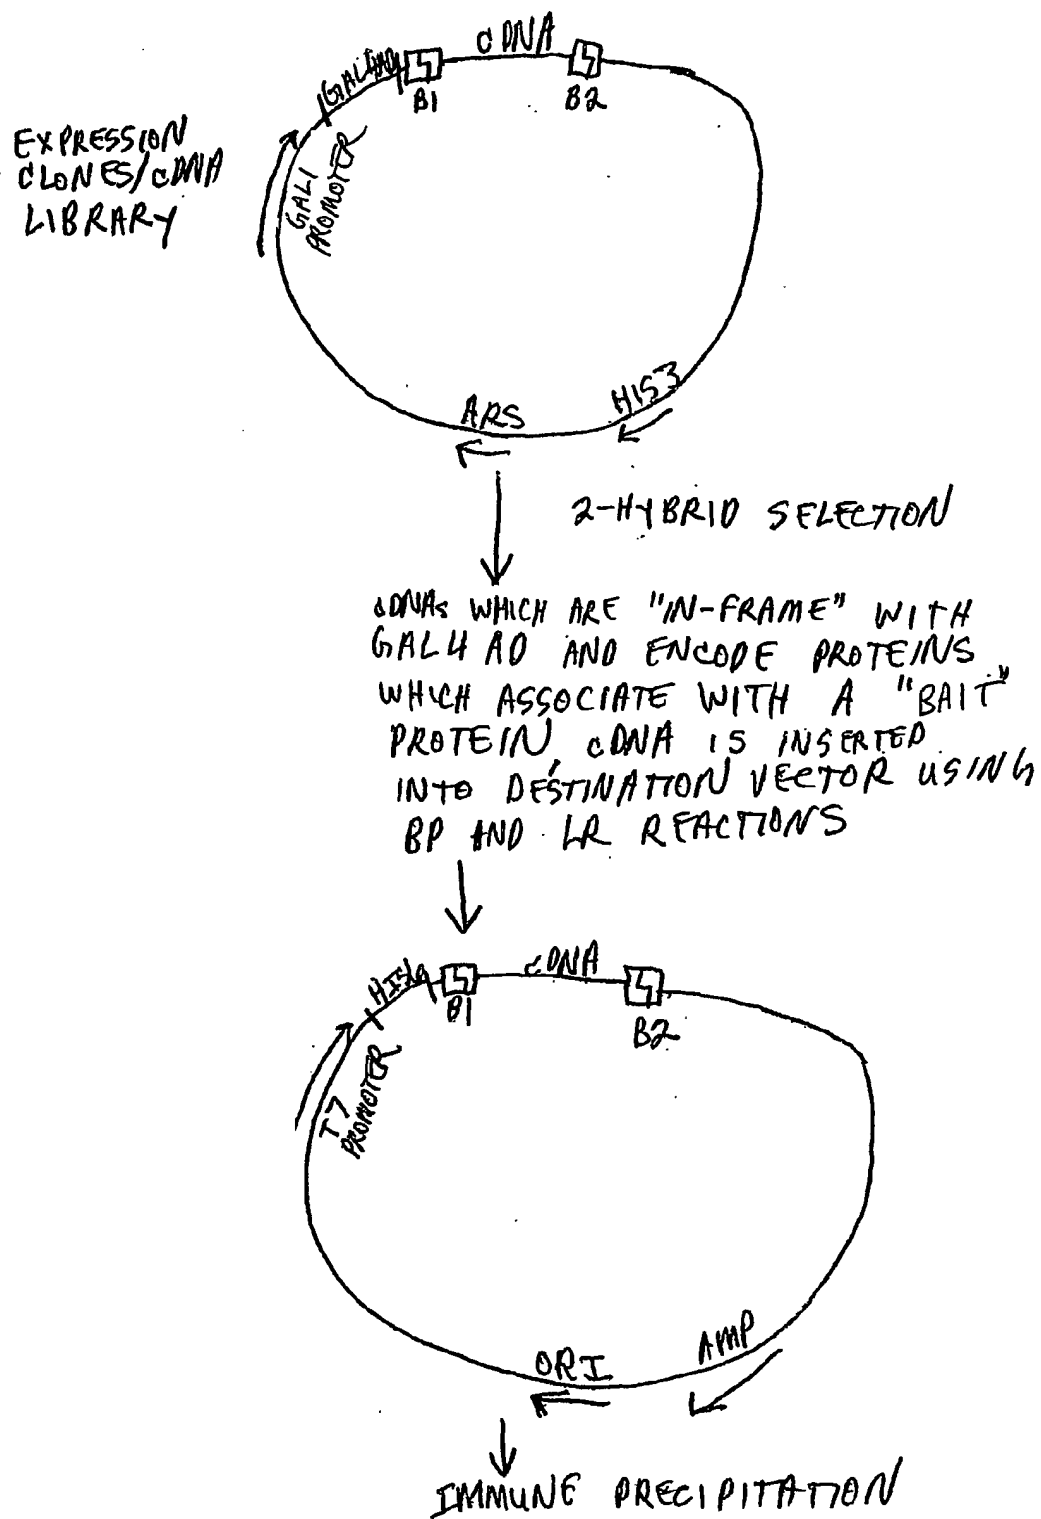 cDNA
GAL4AD
B1
B2
EXPRESSION
CLONES/cDNA
LIBRARY
GAL1
PROMOTER
HIS3
ARS
2-HYBRID SELECTION
cDNAs WHICH ARE "IN-FRAME" WITH
GAL4 AD AND ENCODE PROTEINS
WHICH ASSOCIATE WITH A "BAIT"
PROTEIN, cDNA IS INSERTED
INTO DESTINATION VECTOR USING
BP AND LR REACTIONS
cDNA
HIS6
B1
B2
T7
PROMOTER
AMP
ORI
IMMUNE PRECIPITATION